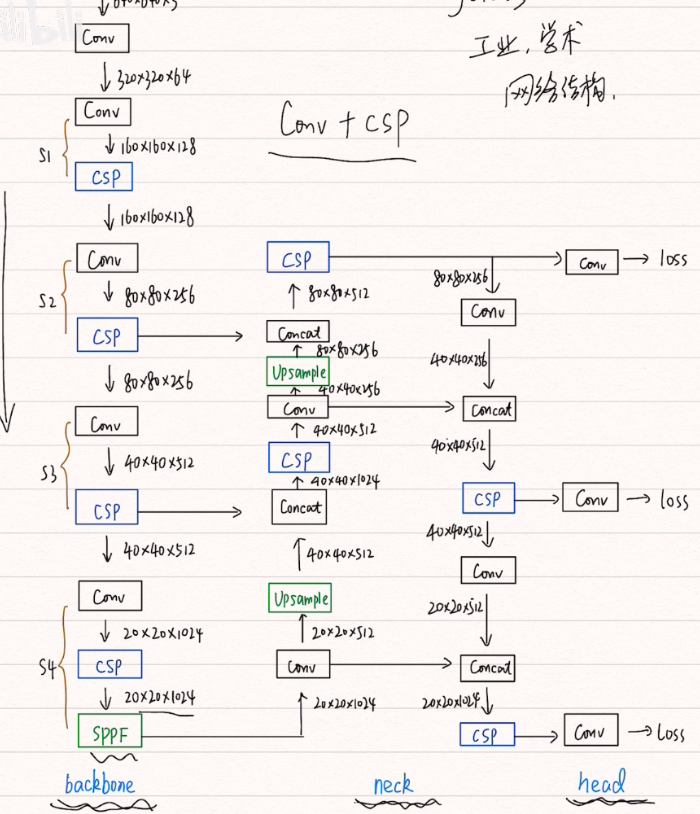 Conv
320×320×64
Conv
S1
160×160×128
CSP
160×160×128
Conv
S2
80×80×256
CSP
80×80×256
Conv
S3
40×40×512
CSP
40×40×512
Conv
20×20×1024
S4
CSP
20×20×1024
SPPF
backbone
工业,学术
网络结构.
Conv + CSP
CSP
80×80×512
Concat
80×80×256
Upsample
40×40×256
Conv
40×40×512
CSP
40×40×1024
Concat
40×40×512
Upsample
20×20×512
Conv
20×20×1024
neck
80×80×256
Conv
40×40×256
Concat
40×40×512
CSP
40×40×512
Conv
20×20×512
Concat
20×20×1024
CSP
Conv
loss
Conv
loss
Conv
Loss
head